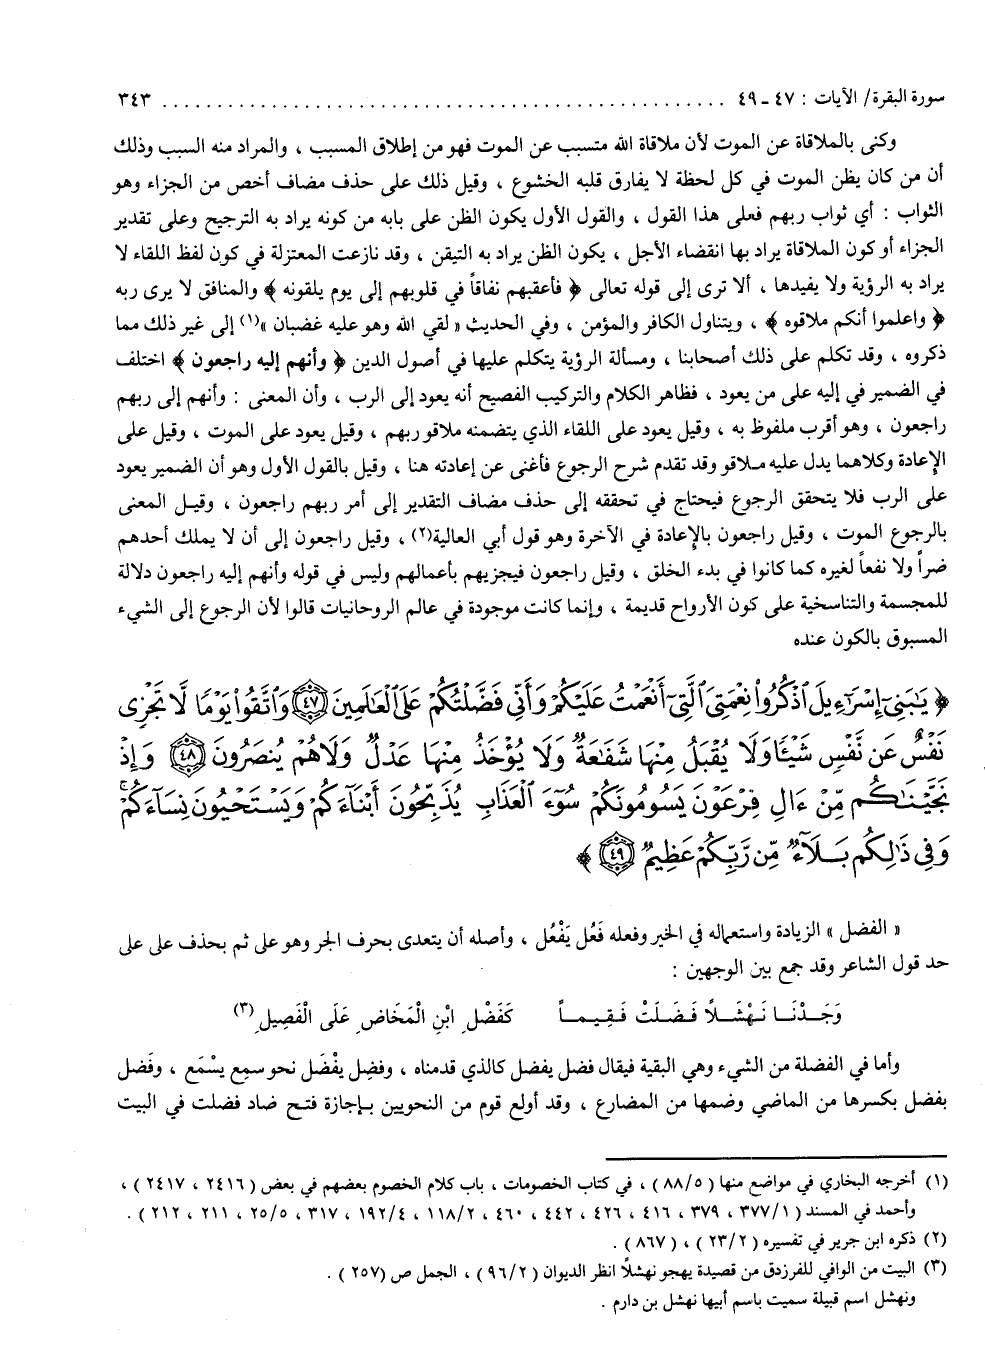 سورة البقرة/ الآيات : ٤٧ ـ ٤٩ ........................................................ ٣٤٣
وكنى بالملاقاة عن الموت لأن ملاقاة الله متسبب عن الموت فهو من إطلاق المسبب ، والمراد منه السبب وذلك
أن من كان يظن الموت في كل لحظة لا يفارق قلبه الخشوع ، وقيل ذلك على حذف مضاف أخص من الجزاء وهو
الثواب : أي ثواب ربهم فعلى هذا القول ، والقول الأول يكون الظن على بابه من كونه يراد به الترجيح وعلى تقدير
الجزاء أو كون الملاقاة يراد بها انقضاء الأجل ، يكون الظن يراد به التيقن ، وقد نازعت المعتزلة في كون لفظ اللقاء لا
يراد به الرؤية ولا يفيدها ، ألا ترى إلى قوله تعالى ﴿ فأعقبهم نفاقاً في قلوبهم إلى يوم يلقونه ﴾ والمنافق لا يرى ربه
﴿ واعلموا أنكم ملاقوه ﴾ ، ويتناول الكافر والمؤمن ، وفي الحديث « لقي الله وهو عليه غضبان »(١) إلى غير ذلك مما
ذكروه ، وقد تكلم على ذلك أصحابنا ، ومسألة الرؤية يتكلم عليها في أصول الدين ﴿ وأنهم إليه راجعون ﴾ اختلف
في الضمير في إليه على من يعود ، فظاهر الكلام والتركيب الفصيح أنه يعود إلى الرب ، وأن المعنى : وأنهم إلى ربهم
راجعون ، وهو أقرب ملفوظ به ، وقيل يعود على اللقاء الذي يتضمنه ملاقو ربهم ، وقيل يعود على الموت ، وقيل على
الإعادة وكلاهما يدل عليه ملاقو وقد تقدم شرح الرجوع فأغنى عن إعادته هنا ، وقيل بالقول الأول وهو أن الضمير يعود
على الرب فلا يتحقق الرجوع فيحتاج في تحققه إلى حذف مضاف التقدير إلى أمر ربهم راجعون ، وقيل المعنى
بالرجوع الموت ، وقيل راجعون بالإعادة في الآخرة وهو قول أبي العالية(٢) ، وقيل راجعون إلى أن لا يملك أحدهم
ضراً ولا نفعاً لغيره كما كانوا في بدء الخلق ، وقيل راجعون فيجزيهم بأعمالهم وليس في قوله وأنهم إليه راجعون دلالة
للمجسمة والتناسخية على كون الأرواح قديمة ، وإنما كانت موجودة في عالم الروحانيات قالوا لأن الرجوع إلى الشيء
المسبوق بالكون عنده
﴿ يَٰبَنِىٓ إِسْرَٰٓءِيلَ ٱذْكُرُوا۟ نِعْمَتِىَ ٱلَّتِىٓ أَنْعَمْتُ عَلَيْكُمْ وَأَنِّى فَضَّلْتُكُمْ عَلَى ٱلْعَٰلَمِينَ ٤٧ وَٱتَّقُوا۟ يَوْمًا لَّا تَجْزِى
نَفْسٌ عَن نَّفْسٍ شَيْـًٔا وَلَا يُقْبَلُ مِنْهَا شَفَٰعَةٌ وَلَا يُؤْخَذُ مِنْهَا عَدْلٌ وَلَا هُمْ يُنصَرُونَ ٤٨ وَإِذْ
نَجَّيْنَٰكُم مِّنْ ءَالِ فِرْعَوْنَ يَسُومُونَكُمْ سُوٓءَ ٱلْعَذَابِ يُذَبِّحُونَ أَبْنَآءَكُمْ وَيَسْتَحْيُونَ نِسَآءَكُمْ ۚ
وَفِى ذَٰلِكُم بَلَآءٌ مِّن رَّبِّكُمْ عَظِيمٌ ٤٩ ﴾
« الفضل » الزيادة واستعماله في الخير وفعله فَعُل يَفْعُل ، وأصله أن يتعدى بحرف الجر وهو على ثم بحذف على على
حد قول الشاعر وقد جمع بين الوجهين :
وَجَدْنَا نَهْشَلاً فَضَلَتْ فَقِيماً كَفَضْلِ ابْنِ الْمَخَاضِ عَلَى الْفَصِيلِ(٣)
وأما في الفضلة من الشيء وهي البقية فيقال فضل يفضل كالذي قدمناه ، وفضِل يفْضَل نحو سمِع يسْمَع ، وفَضل
يفضل بكسرها من الماضي وضمها من المضارع ، وقد أولع قوم من النحويين بإجازة فتح ضاد فضلت في البيت
(١) أخرجه البخاري في مواضع منها (٨٨/٥) ، في كتاب الخصومات ، باب كلام الخصوم بعضهم في بعض (٢٤١٦ ، ٢٤١٧) ،
وأحمد في المسند (٣٧٧/١ ، ٣٧٩ ، ٤١٦ ، ٤٢٦ ، ٤٤٢ ، ٤٦٠ ، ١١٨/٢ ، ١٩٢/٤ ، ٣١٧ ، ٢٥/٥ ، ٢١١ ، ٢١٢) .
(٢) ذكره ابن جرير في تفسيره (٢٣/٢) ، (٨٦٧) .
(٣) البيت من الوافي للفرزدق من قصيدة يهجو نهشلاً انظر الديوان (٩٦/٢) ، الجمل ص (٢٥٧) .
ونهشل اسم قبيلة سميت باسم أبيها نهشل بن دارم .